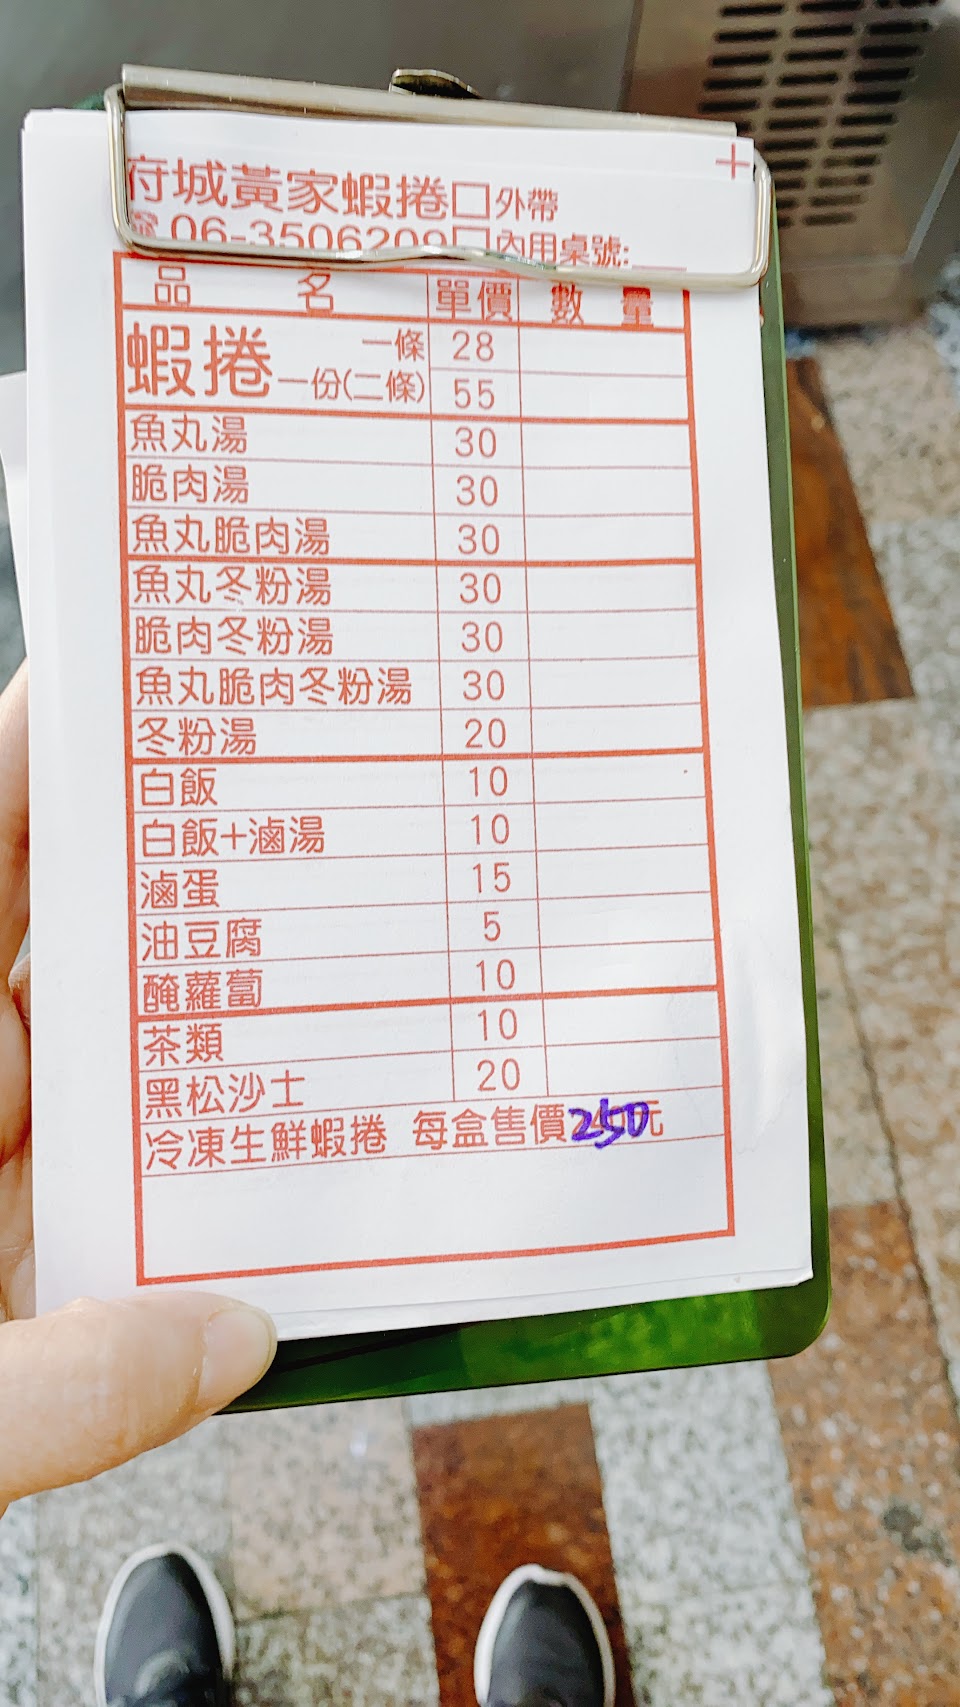 府城黃家蝦捲□外帶
☎06-3506209□內用桌號:
品 名 單價 數量
蝦捲 一條 28
一份(二條) 55
魚丸湯 30
脆肉湯 30
魚丸脆肉湯 30
魚丸冬粉湯 30
脆肉冬粉湯 30
魚丸脆肉冬粉湯 30
冬粉湯 20
白飯 10
白飯+滷湯 10
滷蛋 15
油豆腐 5
醃蘿蔔 10
茶類 10
黑松沙士 20
冷凍生鮮蝦捲 每盒售價250元